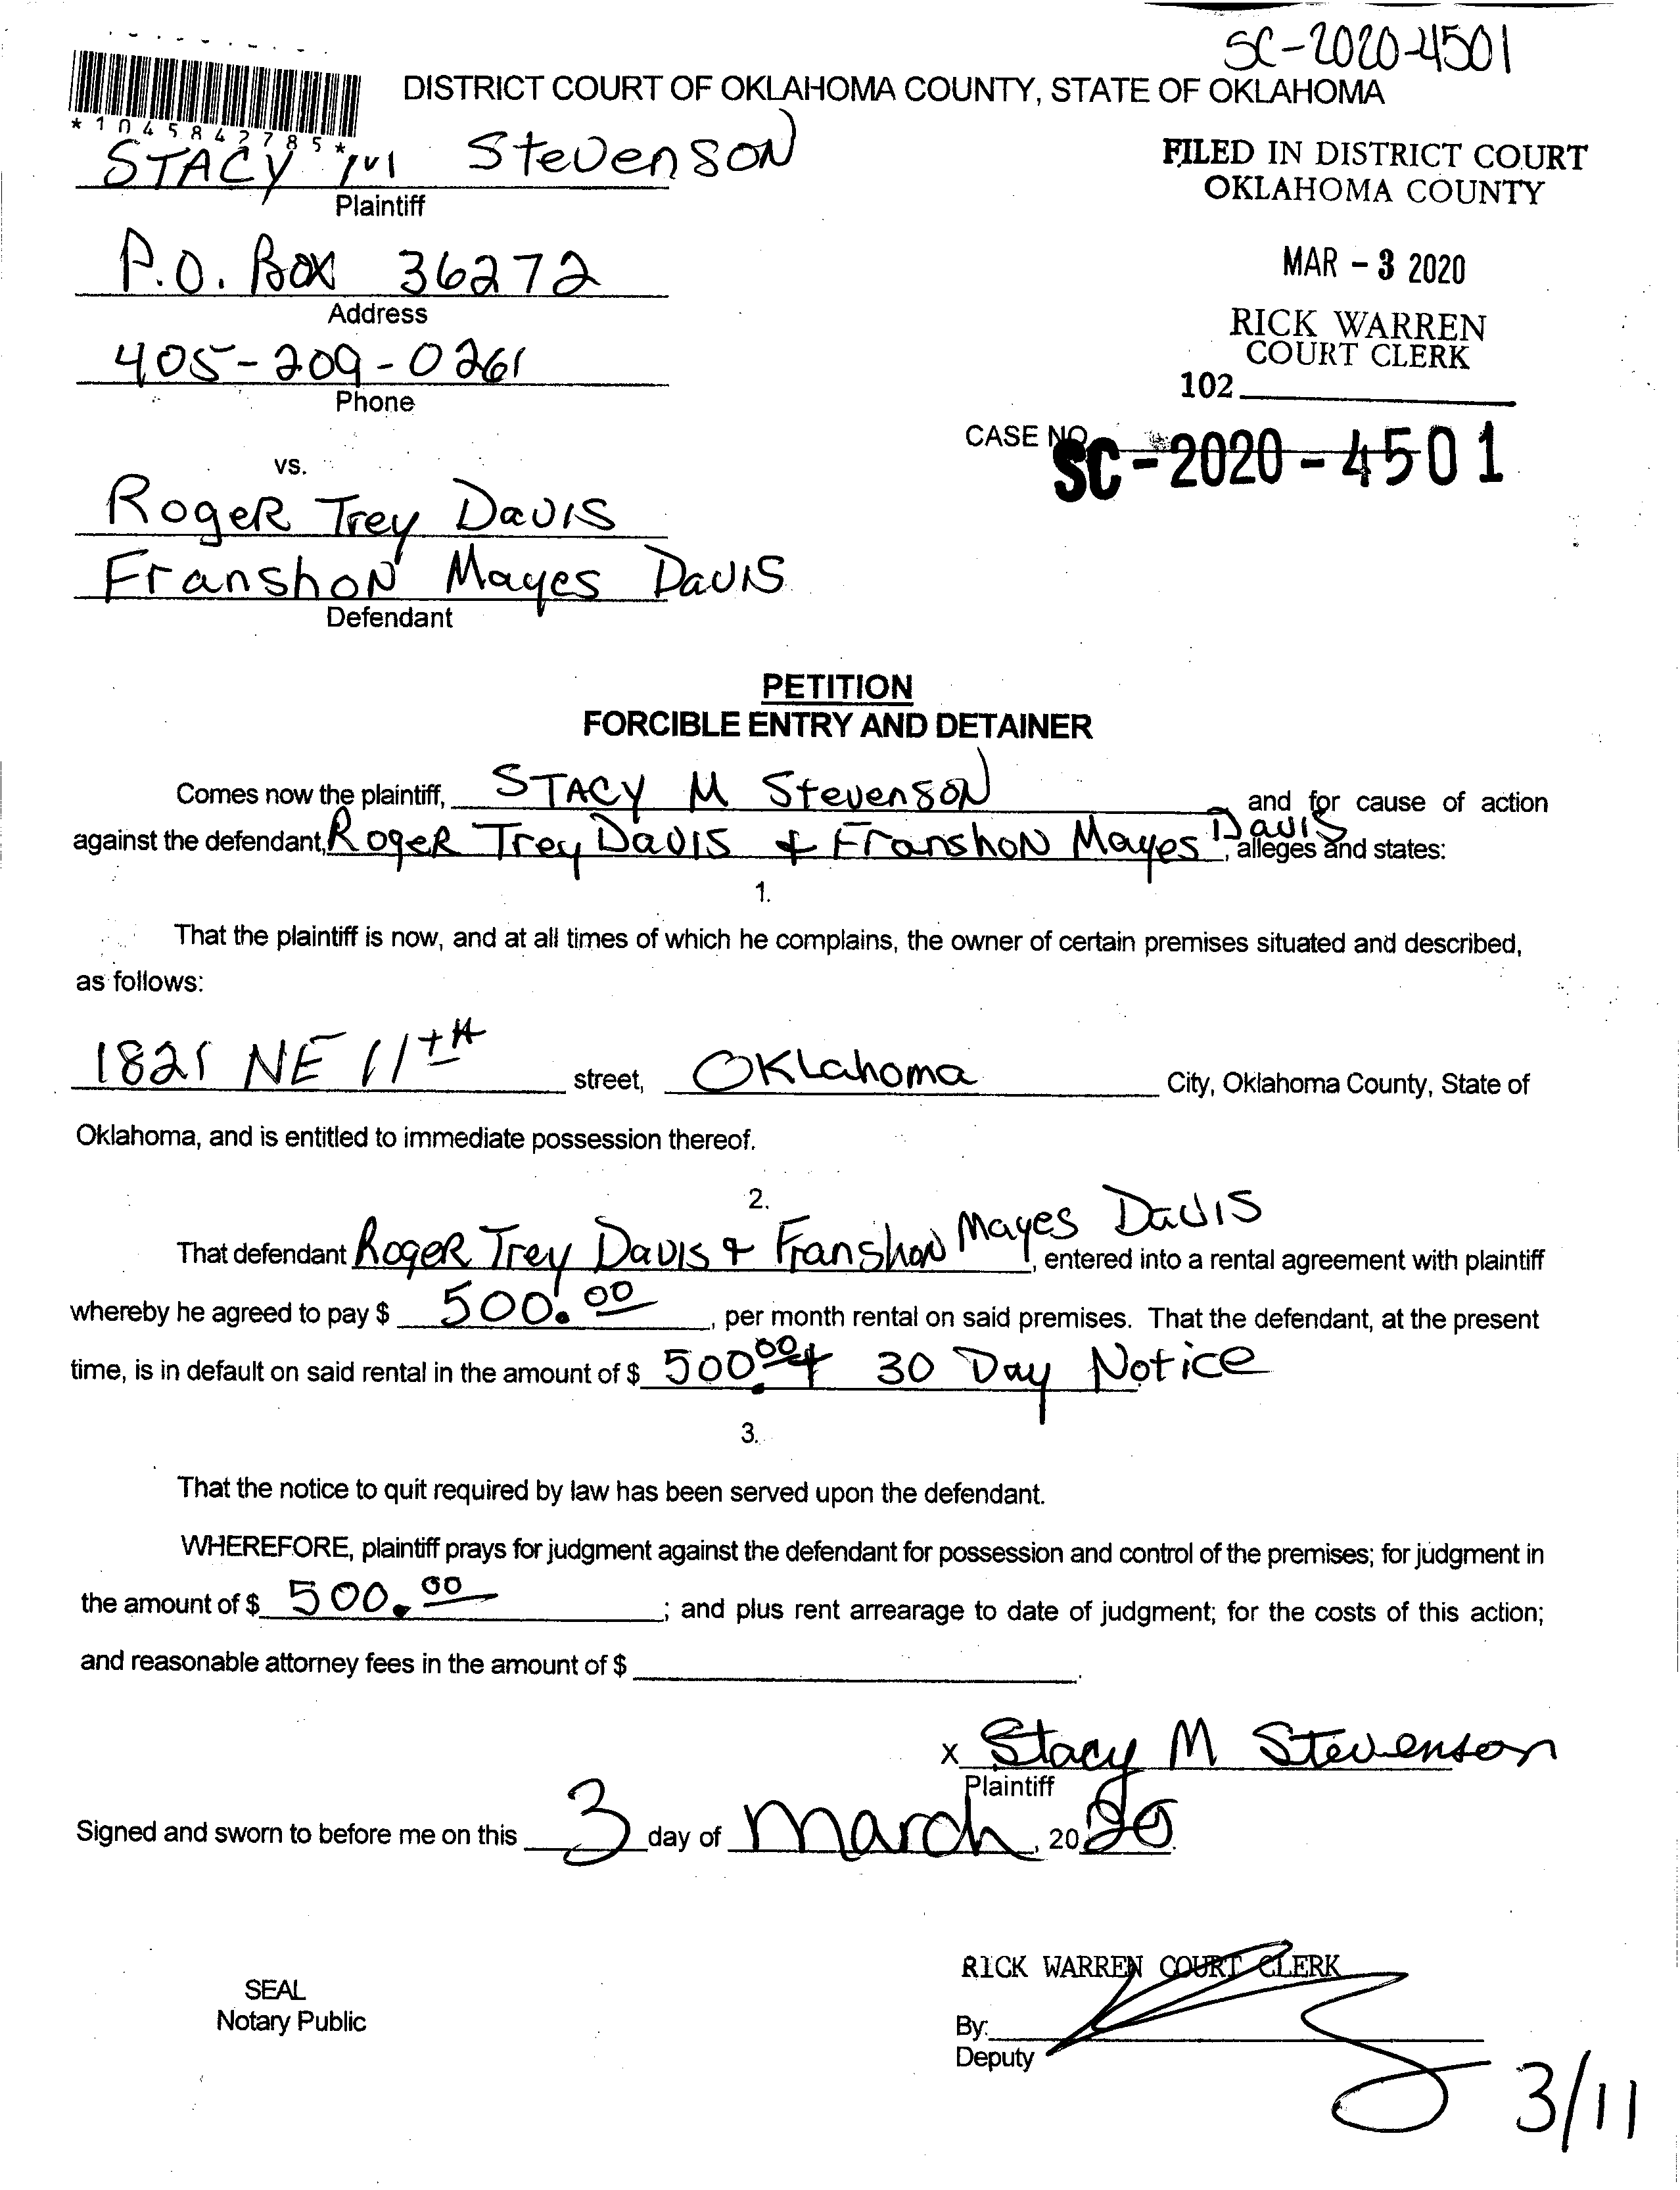 SC-2020-4501
DISTRICT COURT OF OKLAHOMA COUNTY, STATE OF OKLAHOMA
*1045842785*
STACY M Stevenson
Plaintiff
FILED IN DISTRICT COURT
OKLAHOMA COUNTY
P.O. Box 36272
Address
MAR - 3 2020
405-209-0261
Phone
RICK WARREN
COURT CLERK
102
CASE NO.
SC-2020-4501
vs.
Roger Trey Davis
Franshon Mayes Davis
Defendant
PETITION
FORCIBLE ENTRY AND DETAINER
Comes now the plaintiff, STACY M Stevenson and for cause of action
against the defendant, Roger Trey Davis + Franshon Mayes Davis, alleges and states:
1.
That the plaintiff is now, and at all times of which he complains, the owner of certain premises situated and described,
as follows:
1821 NE 11TH street, Oklahoma City, Oklahoma County, State of
Oklahoma, and is entitled to immediate possession thereof.
2.
That defendant Roger Trey Davis + Franshon Mayes Davis, entered into a rental agreement with plaintiff
whereby he agreed to pay $ 500.00, per month rental on said premises. That the defendant, at the present
time, is in default on said rental in the amount of $ 500.00 + 30 Day Notice
3.
That the notice to quit required by law has been served upon the defendant.
WHEREFORE, plaintiff prays for judgment against the defendant for possession and control of the premises; for judgment in
the amount of $ 500.00; and plus rent arrearage to date of judgment; for the costs of this action;
and reasonable attorney fees in the amount of $ .
x Stacy M Stevenson
Plaintiff
Signed and sworn to before me on this 3 day of March, 2020.
RICK WARREN COURT CLERK
SEAL
Notary Public
By:
Deputy
3/11